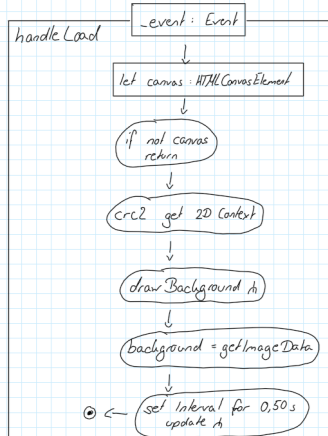 _event: Event
handleLoad
let canvas: HTMLCanvasElement
if not canvas
return
crc2 get 2D Context
drawBackground
background = getImageData
set Interval for 0,50s
update